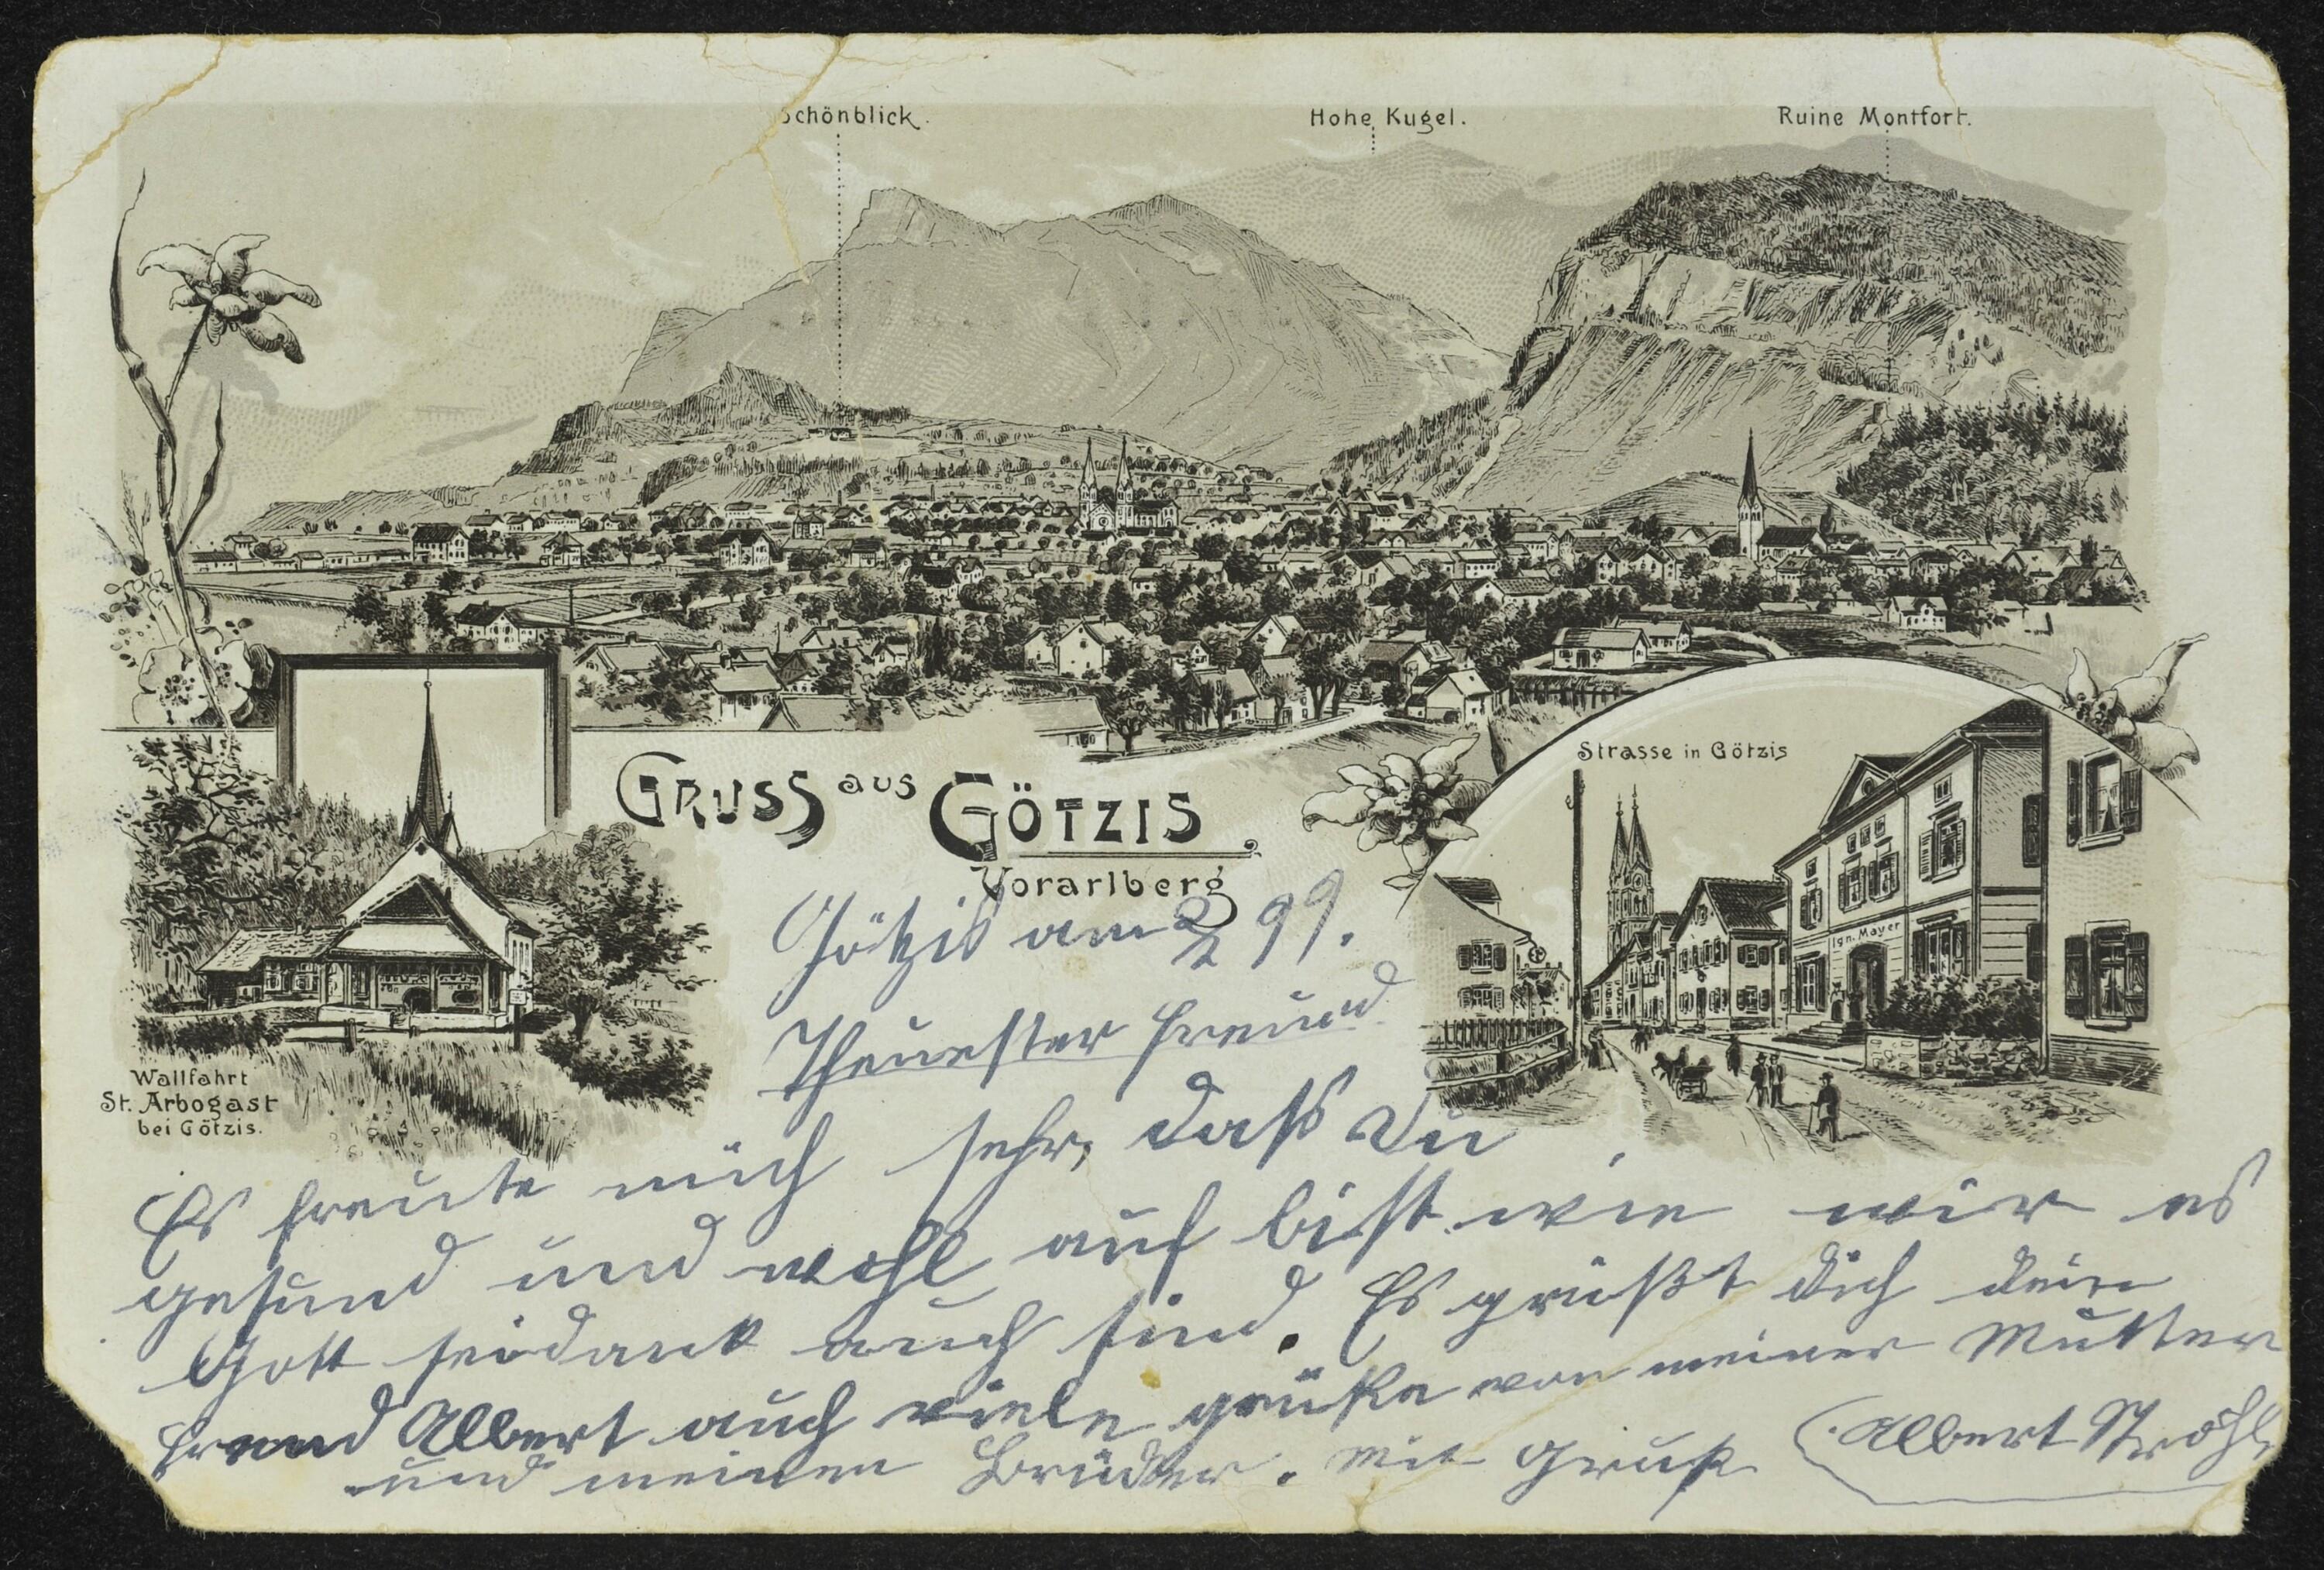 Schönblick.
Hohe Kugel.
Ruine Montfort.
GRUSS aus GÖTZIS.
Vorarlberg
Strasse in Götzis
Ign. Mayer
Wallfahrt
St. Arbogast
bei Götzis.
Götzis am 99.
Theuester Freund
Es freute mich sehr, dass Du
gesund und wohl auf bist wie wir es
Gott seidank auch sind. Es grüßt dich dein
Freund Albert auch viele grüße von meiner Mutter
und meinen Brüder. Mit Gruß (Albert Ströhle